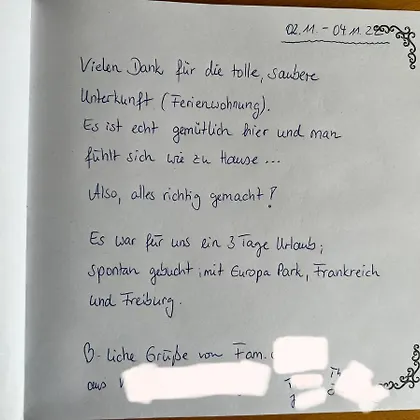 02.11. - 04.11.22
Vielen Dank für die tolle, saubere
Unterkunft (Ferienwohnung).
Es ist echt gemütlich hier und man
fühlt sich wie zu Hause ...
Also, alles richtig gemacht!
Es war für uns ein 3 Tage Urlaub;
spontan gebucht; mit Europa Park, Frankreich
und Freiburg.
liche Grüße von Fam.
aus